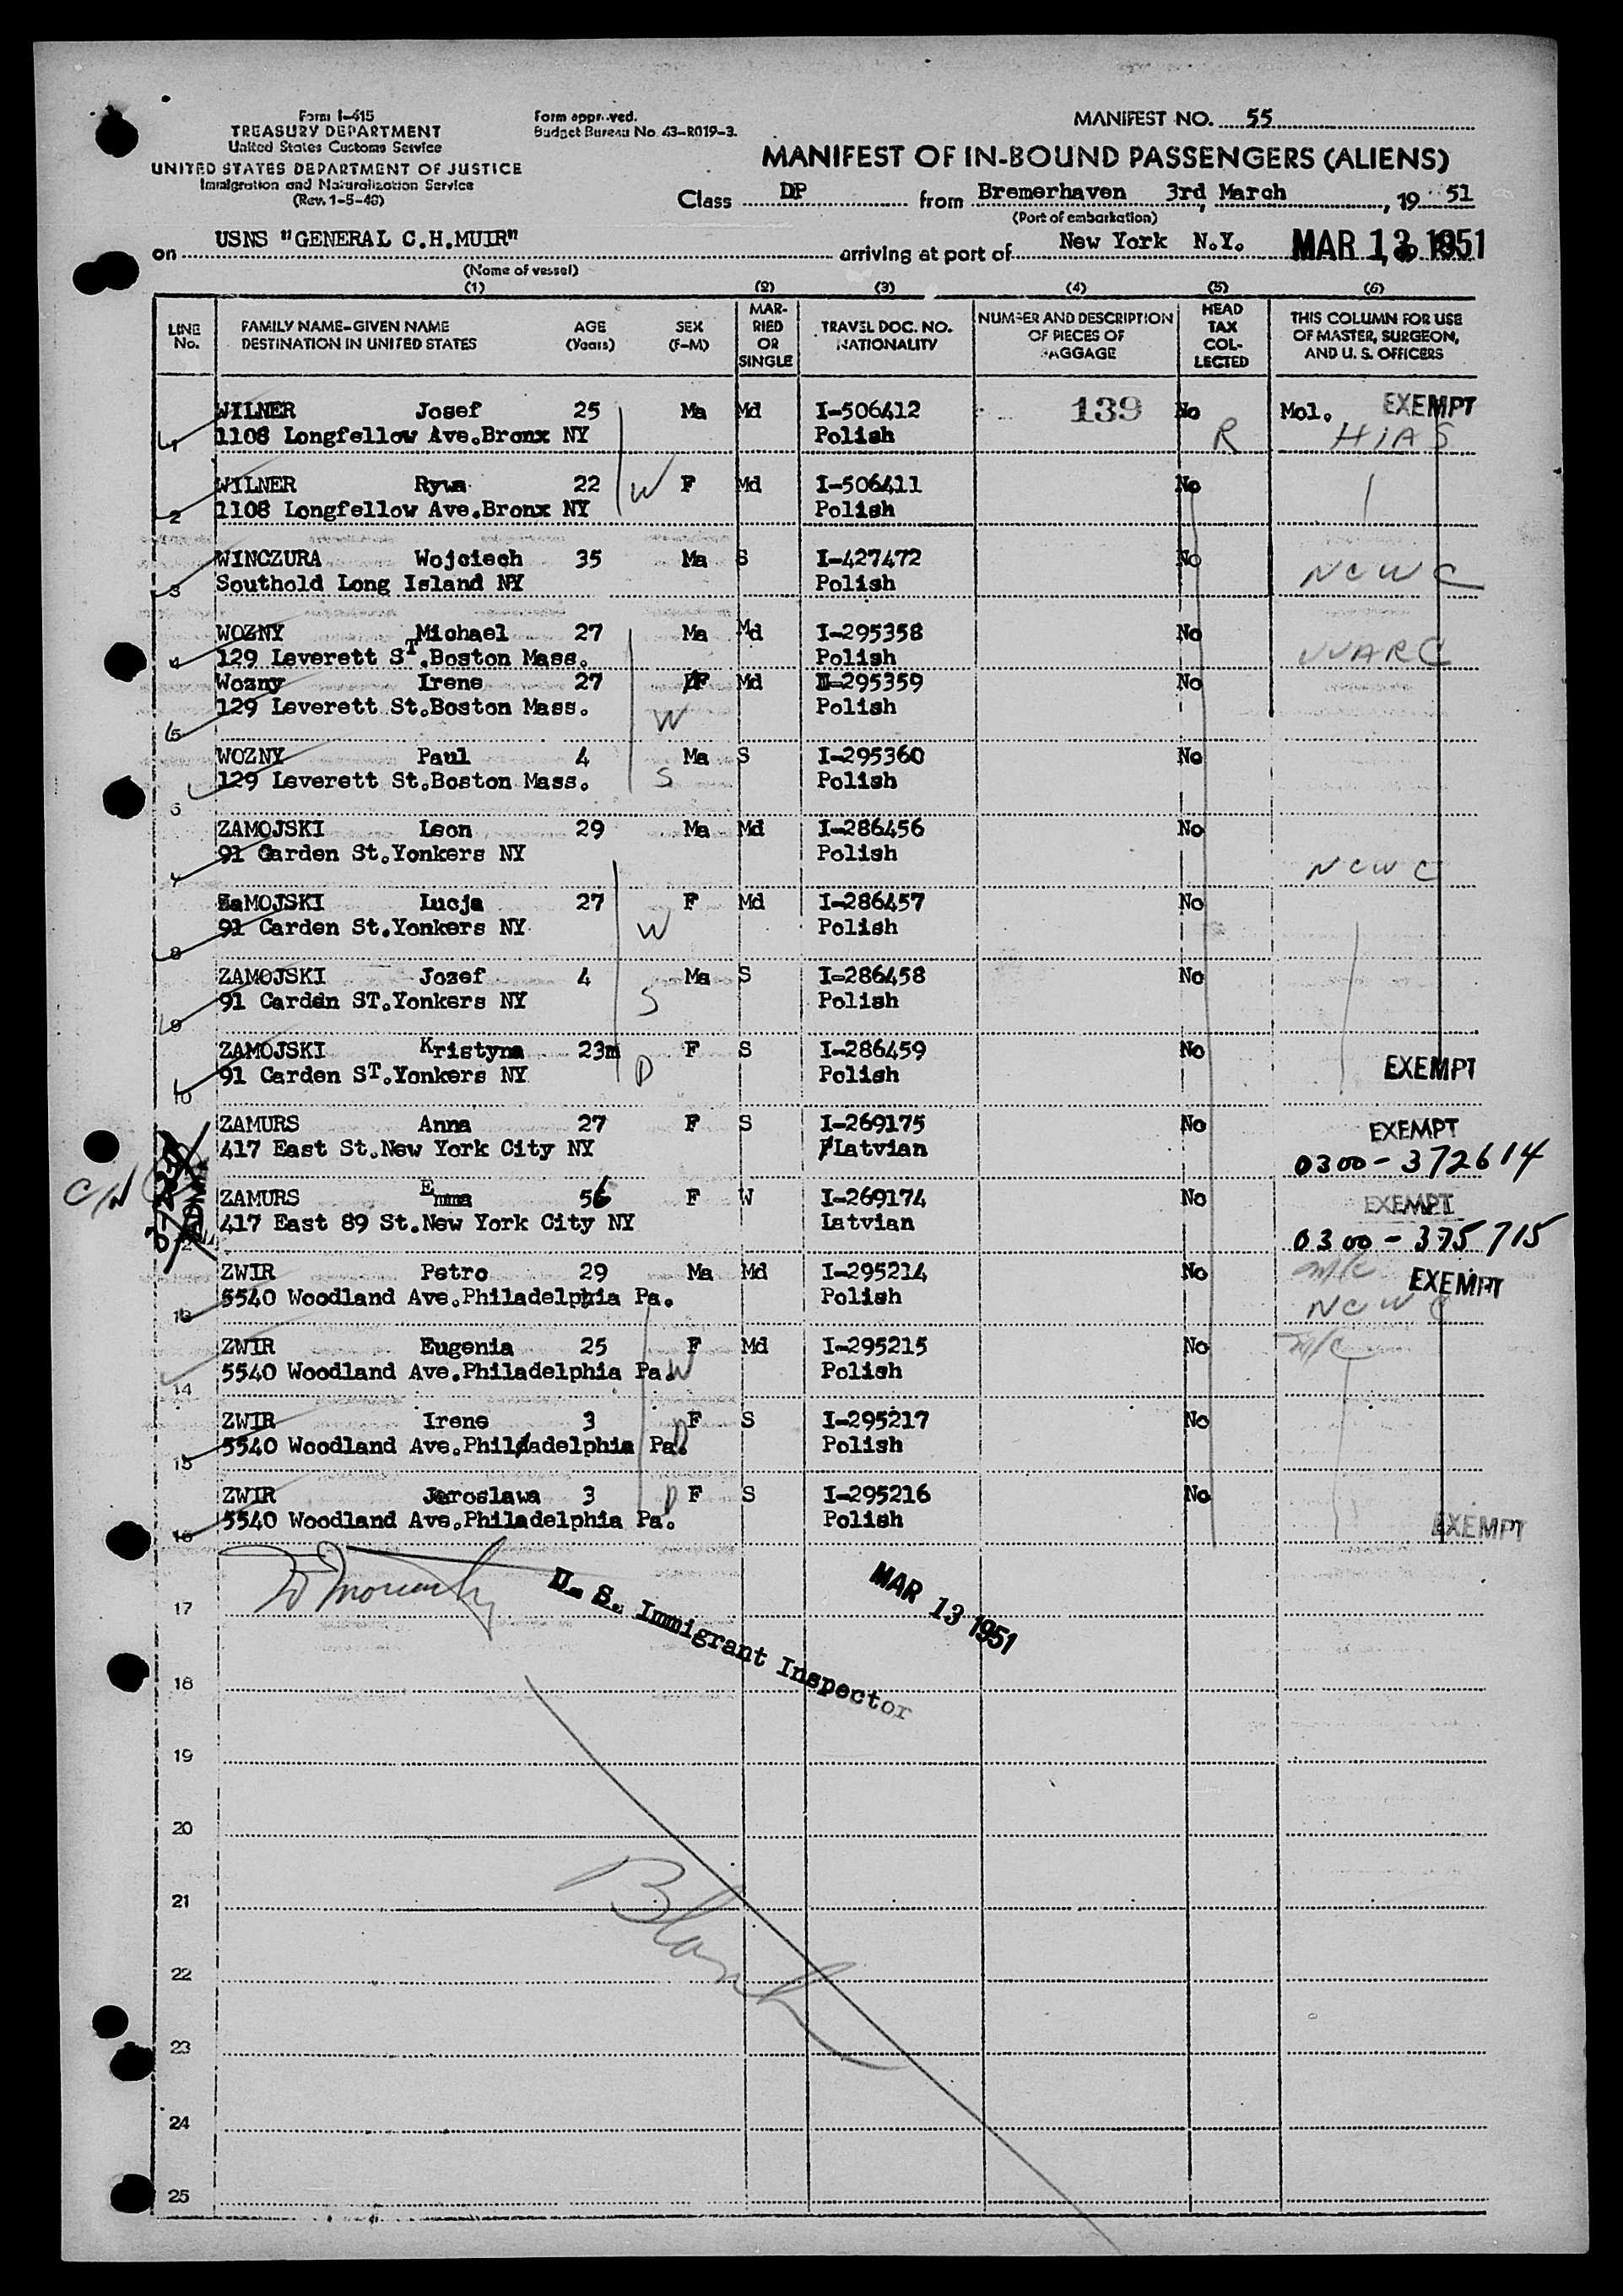 Form I-415
TREASURY DEPARTMENT
United States Customs Service
UNITED STATES DEPARTMENT OF JUSTICE
Immigration and Naturalization Service
(Rev. 1-5-48)
Form approved.
Budget Bureau No. 43-R019-3.
MANIFEST NO. 55
MANIFEST OF IN-BOUND PASSENGERS (ALIENS)
Class DP from Bremerhaven 3rd March, 19 51
(Port of embarkation)
on USNS "GENERAL C.H.MUIR" arriving at port of New York N.Y. MAR 13 1951
(Name of vessel)
(1) (2) (3) (4) (5) (6)
LINE No. FAMILY NAME-GIVEN NAME DESTINATION IN UNITED STATES AGE (Years) SEX (F-M) MARRIED OR SINGLE TRAVEL DOC. NO. NATIONALITY NUMBER AND DESCRIPTION OF PIECES OF BAGGAGE HEAD TAX COLLECTED THIS COLUMN FOR USE OF MASTER, SURGEON, AND U. S. OFFICERS
WILNER Josef 25 Ma Md I-506412 139 No Mol. EXEMPT
1 1108 Longfellow Ave.Bronx NY Polish R HIAS
WILNER Rywa 22 W F Md I-506411 No
2 1108 Longfellow Ave.Bronx NY Polish
WINCZURA Wojciech 35 Ma S I-427472 No NCWC
3 Southold Long Island NY Polish
WOZNY Michael 27 Ma Md I-295358 No
4 129 Leverett ST.Boston Mass. Polish
Wozny Irene 27 F Md I-295359 No
5 129 Leverett St.Boston Mass. W Polish
WOZNY Paul 4 Ma S I-295360 No
6 129 Leverett St.Boston Mass. S Polish
ZAMOJSKI Leon 29 Ma Md I-286456 No
7 91 Garden St.Yonkers NY Polish NCWC
ZaMOJSKI Lucja 27 F Md I-286457 No
8 91 Carden St.Yonkers NY W Polish
ZAMOJSKI Jozef 4 Ma S I-286458 No
9 91 Carden ST.Yonkers NY S Polish
ZAMOJSKI Kristyna 23m F S I-286459 No EXEMPT
10 91 Carden ST.Yonkers NY D Polish
ZAMURS Anna 27 F S I-269175 No EXEMPT
417 East St.New York City NY Latvian 0300-372614
C/N ZAMURS Emma 56 F W I-269174 No EXEMPT
12 417 East 89 St.New York City NY Latvian 0300-375715
ZWIR Petro 29 Ma Md I-295214 No EXEMPT
13 5540 Woodland Ave.Philadelphia Pa. Polish NCWC
ZWIR Eugenia 25 F Md I-295215 No
14 5540 Woodland Ave.Philadelphia Pa. W Polish
ZWIR Irene 3 F S I-295217 No
15 5540 Woodland Ave.Philadelphia Pa. D Polish
ZWIR Jaroslawa 3 D F S I-295216 No
16 5540 Woodland Ave.Philadelphia Pa. Polish EXEMPT
U. S. Immigrant Inspector
MAR 13 1951
17
18
19
20
21
Blank
22
23
24
25